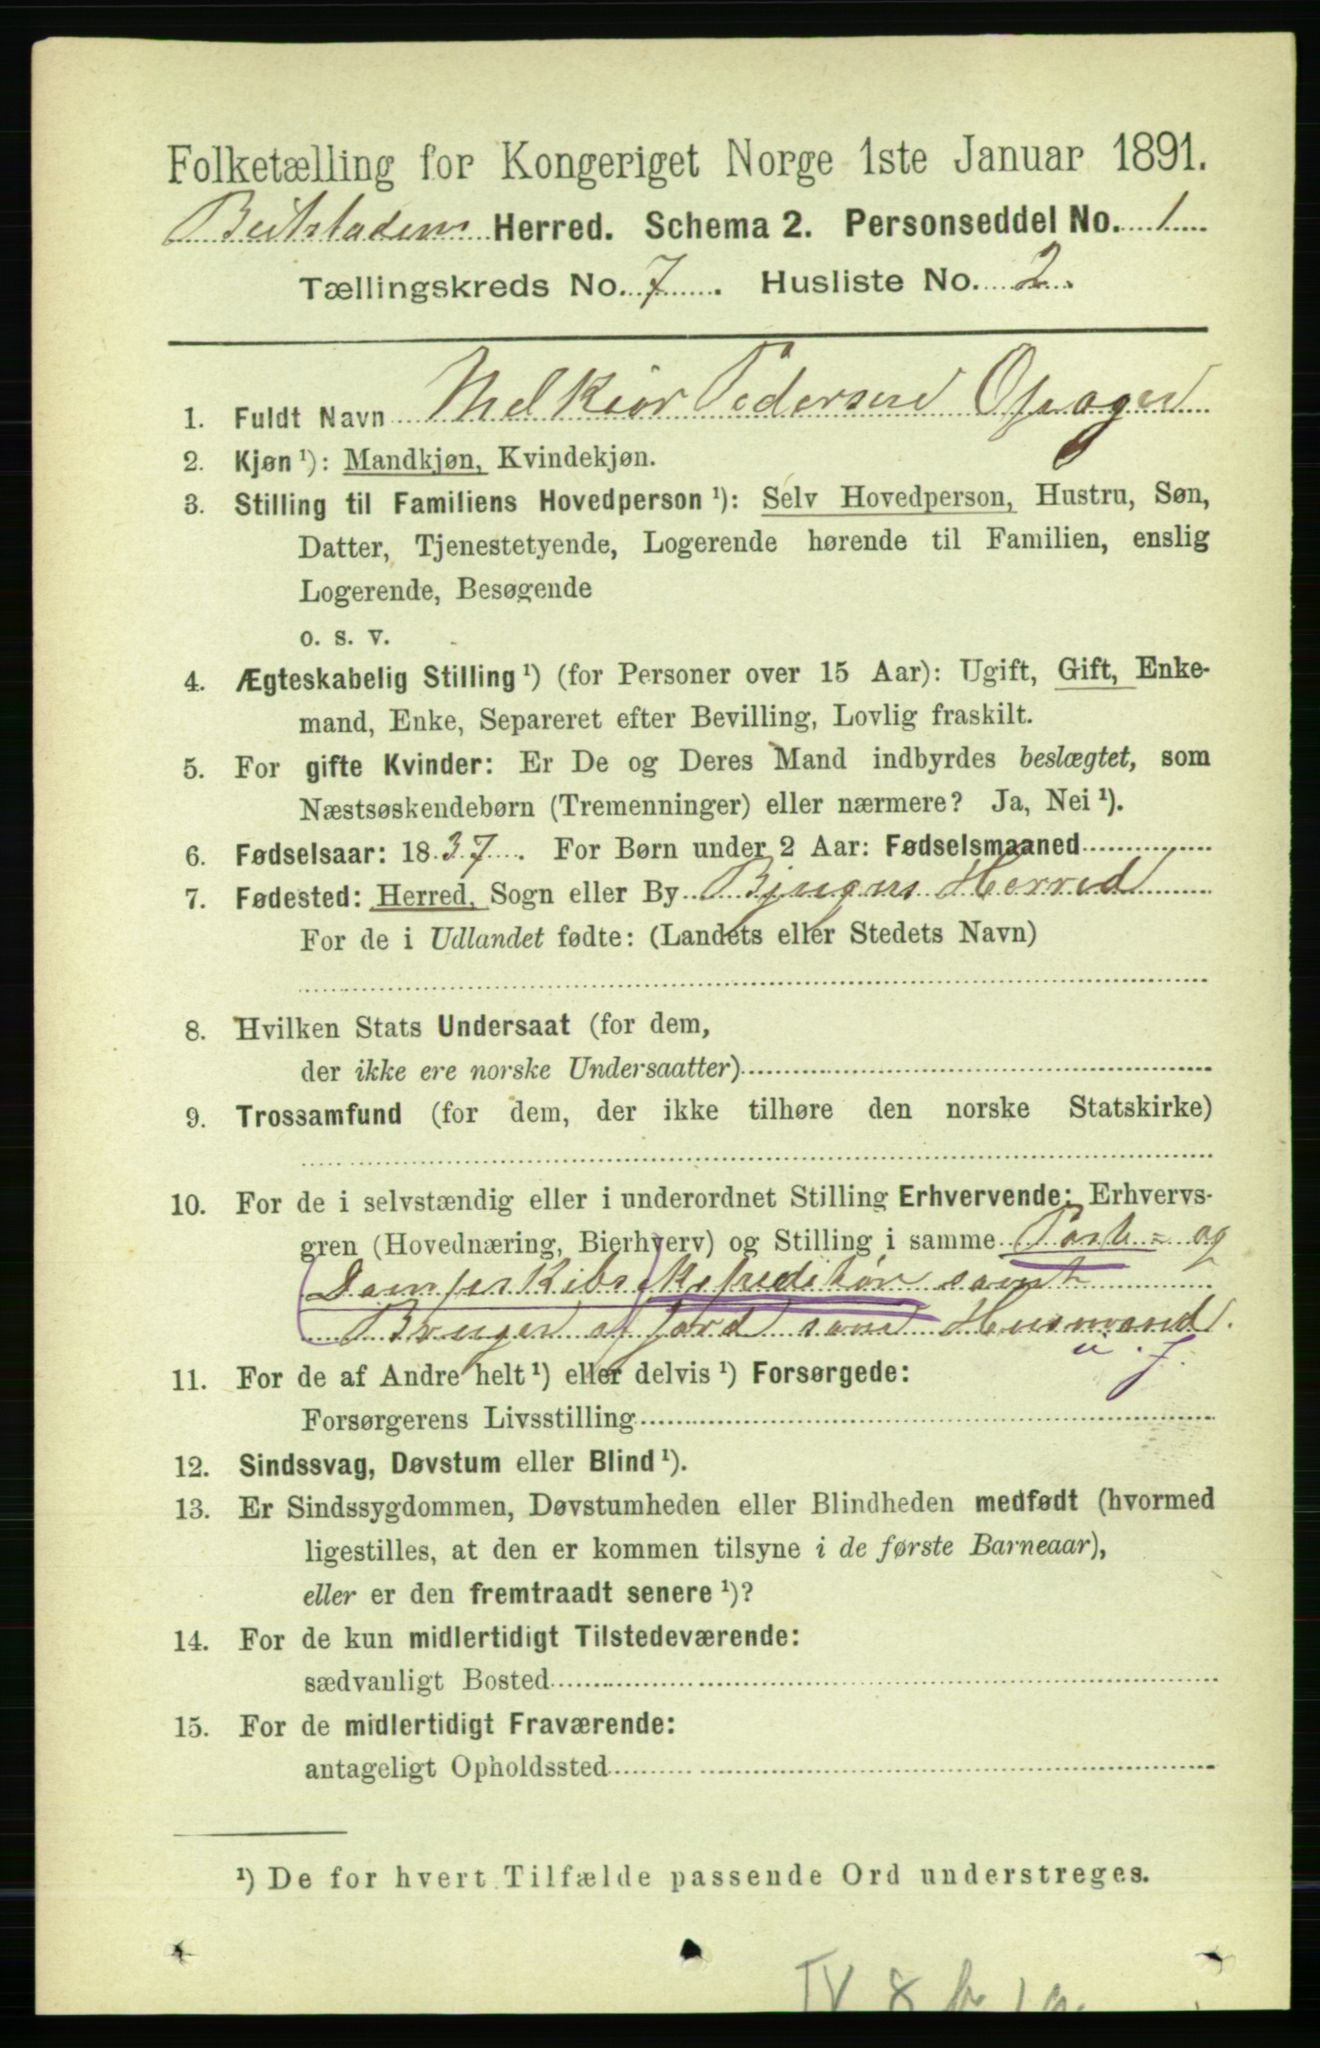 Folketælling for Kongeriget Norge 1ste Januar 1891.
Beitstadens Herred. Schema 2. Personseddel No. 1
Tællingskreds No. 7. Husliste No. 2.
1. Fuldt Navn Melkior Pedersen
2. Kjøn ¹): Mandkjøn, Kvindekjøn.
3. Stilling til Familiens Hovedperson ¹): Selv Hovedperson, Hustru, Søn,
Datter, Tjenestetyende, Logerende hørende til Familien, enslig
Logerende, Besøgende
o. s. v.
4. Ægteskabelig Stilling ¹) (for Personer over 15 Aar): Ugift, Gift, Enke-
mand, Enke, Separeret efter Bevilling, Lovlig fraskilt.
5. For gifte Kvinder: Er De og Deres Mand indbyrdes beslægtet, som
Næstsøskendebørn (Tremenninger) eller nærmere? Ja, Nei ¹).
6. Fødselsaar: 1837. For Børn under 2 Aar: Fødselsmaaned
7. Fødested: Herred, Sogn eller By Bjugns Herred
For de i Udlandet fødte: (Landets eller Stedets Navn)
8. Hvilken Stats Undersaat (for dem,
der ikke ere norske Undersaatter)
9. Trossamfund (for dem, der ikke tilhøre den norske Statskirke)
10. For de i selvstændig eller i underordnet Stilling Erhvervende: Erhvervs-
gren (Hovednæring, Bierhverv) og Stilling i samme Post- og
Dampskibsexpeditør samt
Bruger af jord som Husmand.
u. j.
11. For de af Andre helt ¹) eller delvis ¹) Forsørgede:
Forsørgerens Livsstilling
12. Sindssvag, Døvstum eller Blind ¹).
13. Er Sindssygdommen, Døvstumheden eller Blindheden medfødt (hvormed
ligestilles, at den er kommen tilsyne i de første Barneaar),
eller er den fremtraadt senere ¹)?
14. For de kun midlertidigt Tilstedeværende:
sædvanligt Bosted
15. For de midlertidigt Fraværende:
antageligt Opholdssted
¹) De for hvert Tilfælde passende Ord understreges.
IV 8